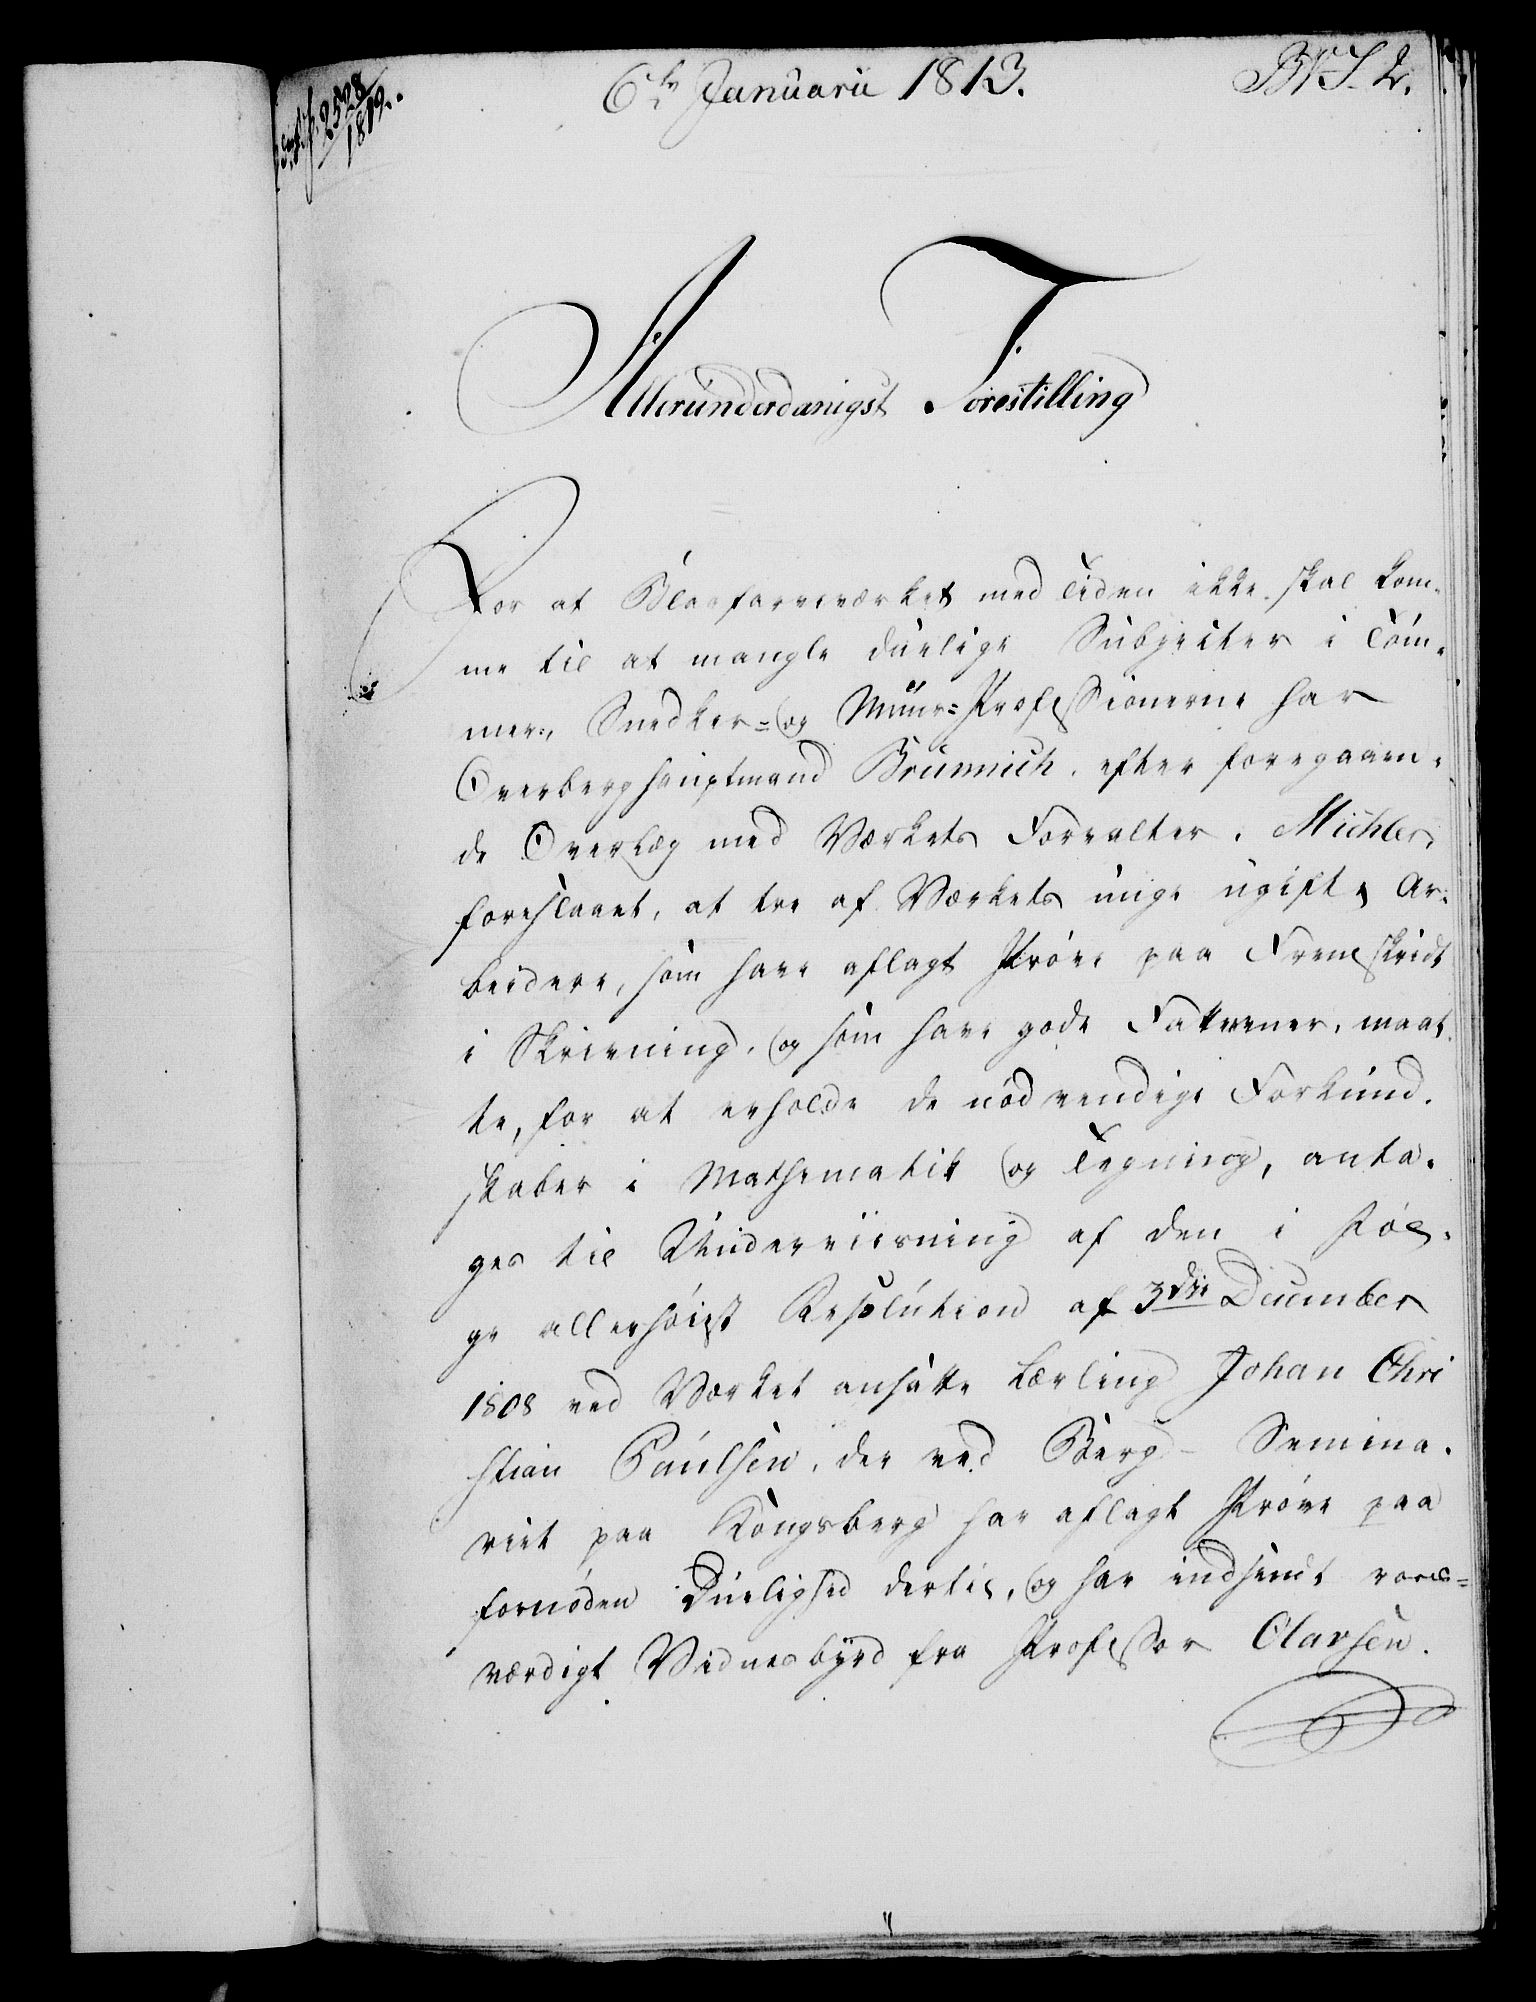 2528
1812.
6te Januarii 1813.
No 2.
Allerunderdanigst Forestilling
For at Blaafarveværket med Tiden ikke skal kom-
me til at mangle duelige Subjecter i Tøm-
mer-, Snedker- og Muur-Professionerne har
Overberghauptmand Brünnich, efter foregaaen-
de Overlæg med Værkets Forvalter, Michler,
foreslaaet, at tre af Værkets unge ugifte Ar-
beidere, som have aflagt Prøve paa Fremskridt
i Skrivning, og som have gode Fatteevner, maat-
te, for at erholde de nødvendige Forkund-
skaber i Mathematik og Tegning, anta-
ges til Underviisning af den i Føl-
ge allerhøist Resolution af 3die December
1808 ved Værket ansatte Lærling Johan Chri
stian Paulsen, der ved Berg-Semina-
riet paa Kongsberg har aflagt Prøve paa
fornøden Duelighed dertil, og har indsendt roes-
værdigt Vidnesbyrd fra Professor Olavsen.